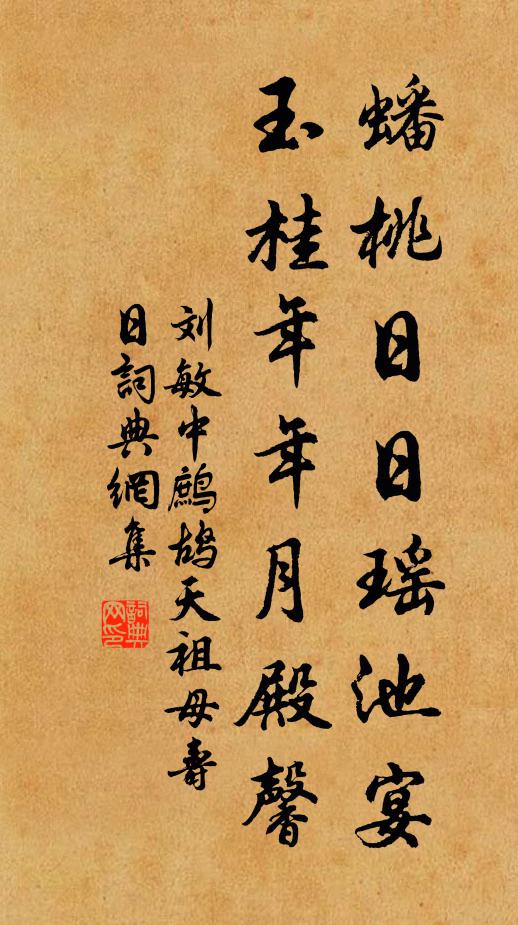 蟠桃日日瑶池宴
玉桂年年月殿馨
刘敏中鹧鸪天祖母寿
日詞典網集
詞典网印